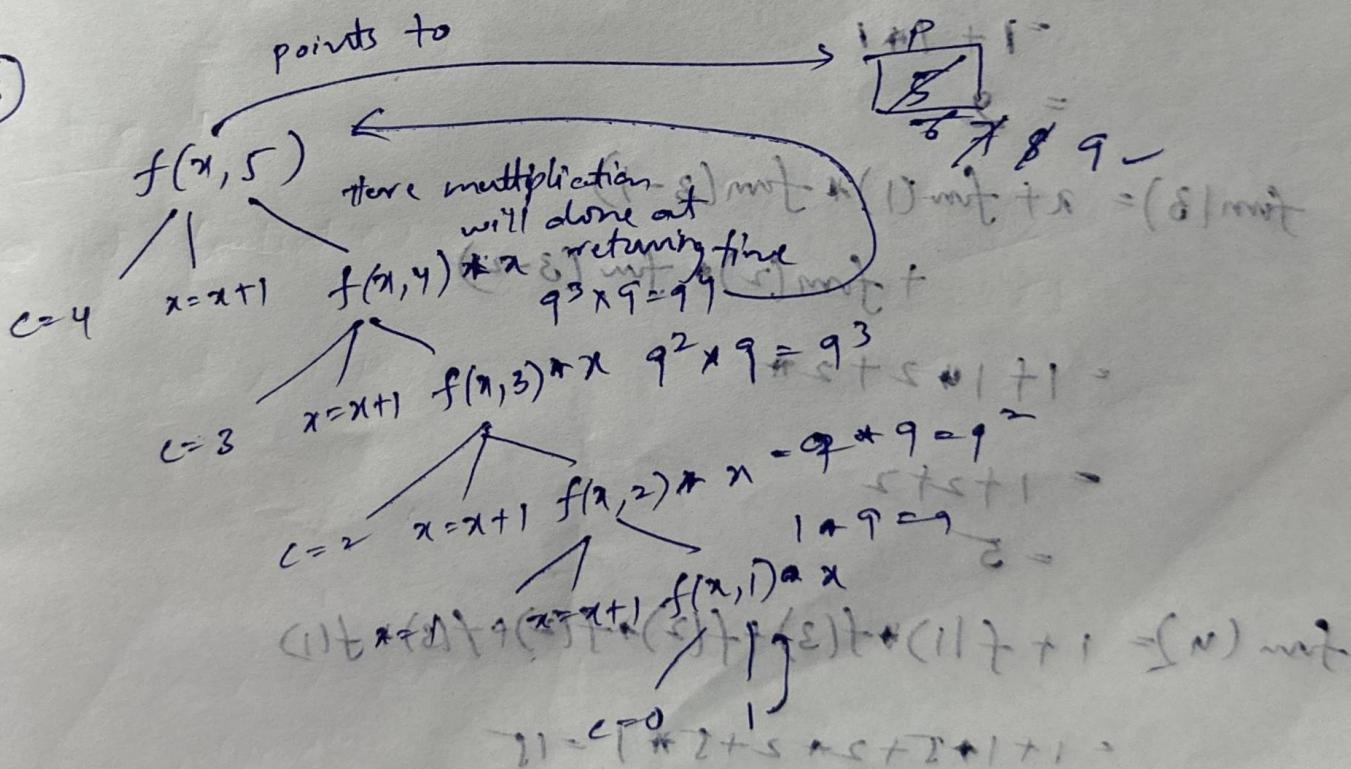 points to
P
5
6 7 8 9
f(x,5)
Here multiplication
will done at
returning time
c=4 x=x+1 f(x,4) * x 9³ x 9 = 9⁴
c=3 x=x+1 f(x,3) * x 9² x 9 = 9³
c=2 x=x+1 f(x,2) * x = 9 * 9 = 9²
1 * 9 = 9
x=x+1 f(x,1) * x
c=0 1